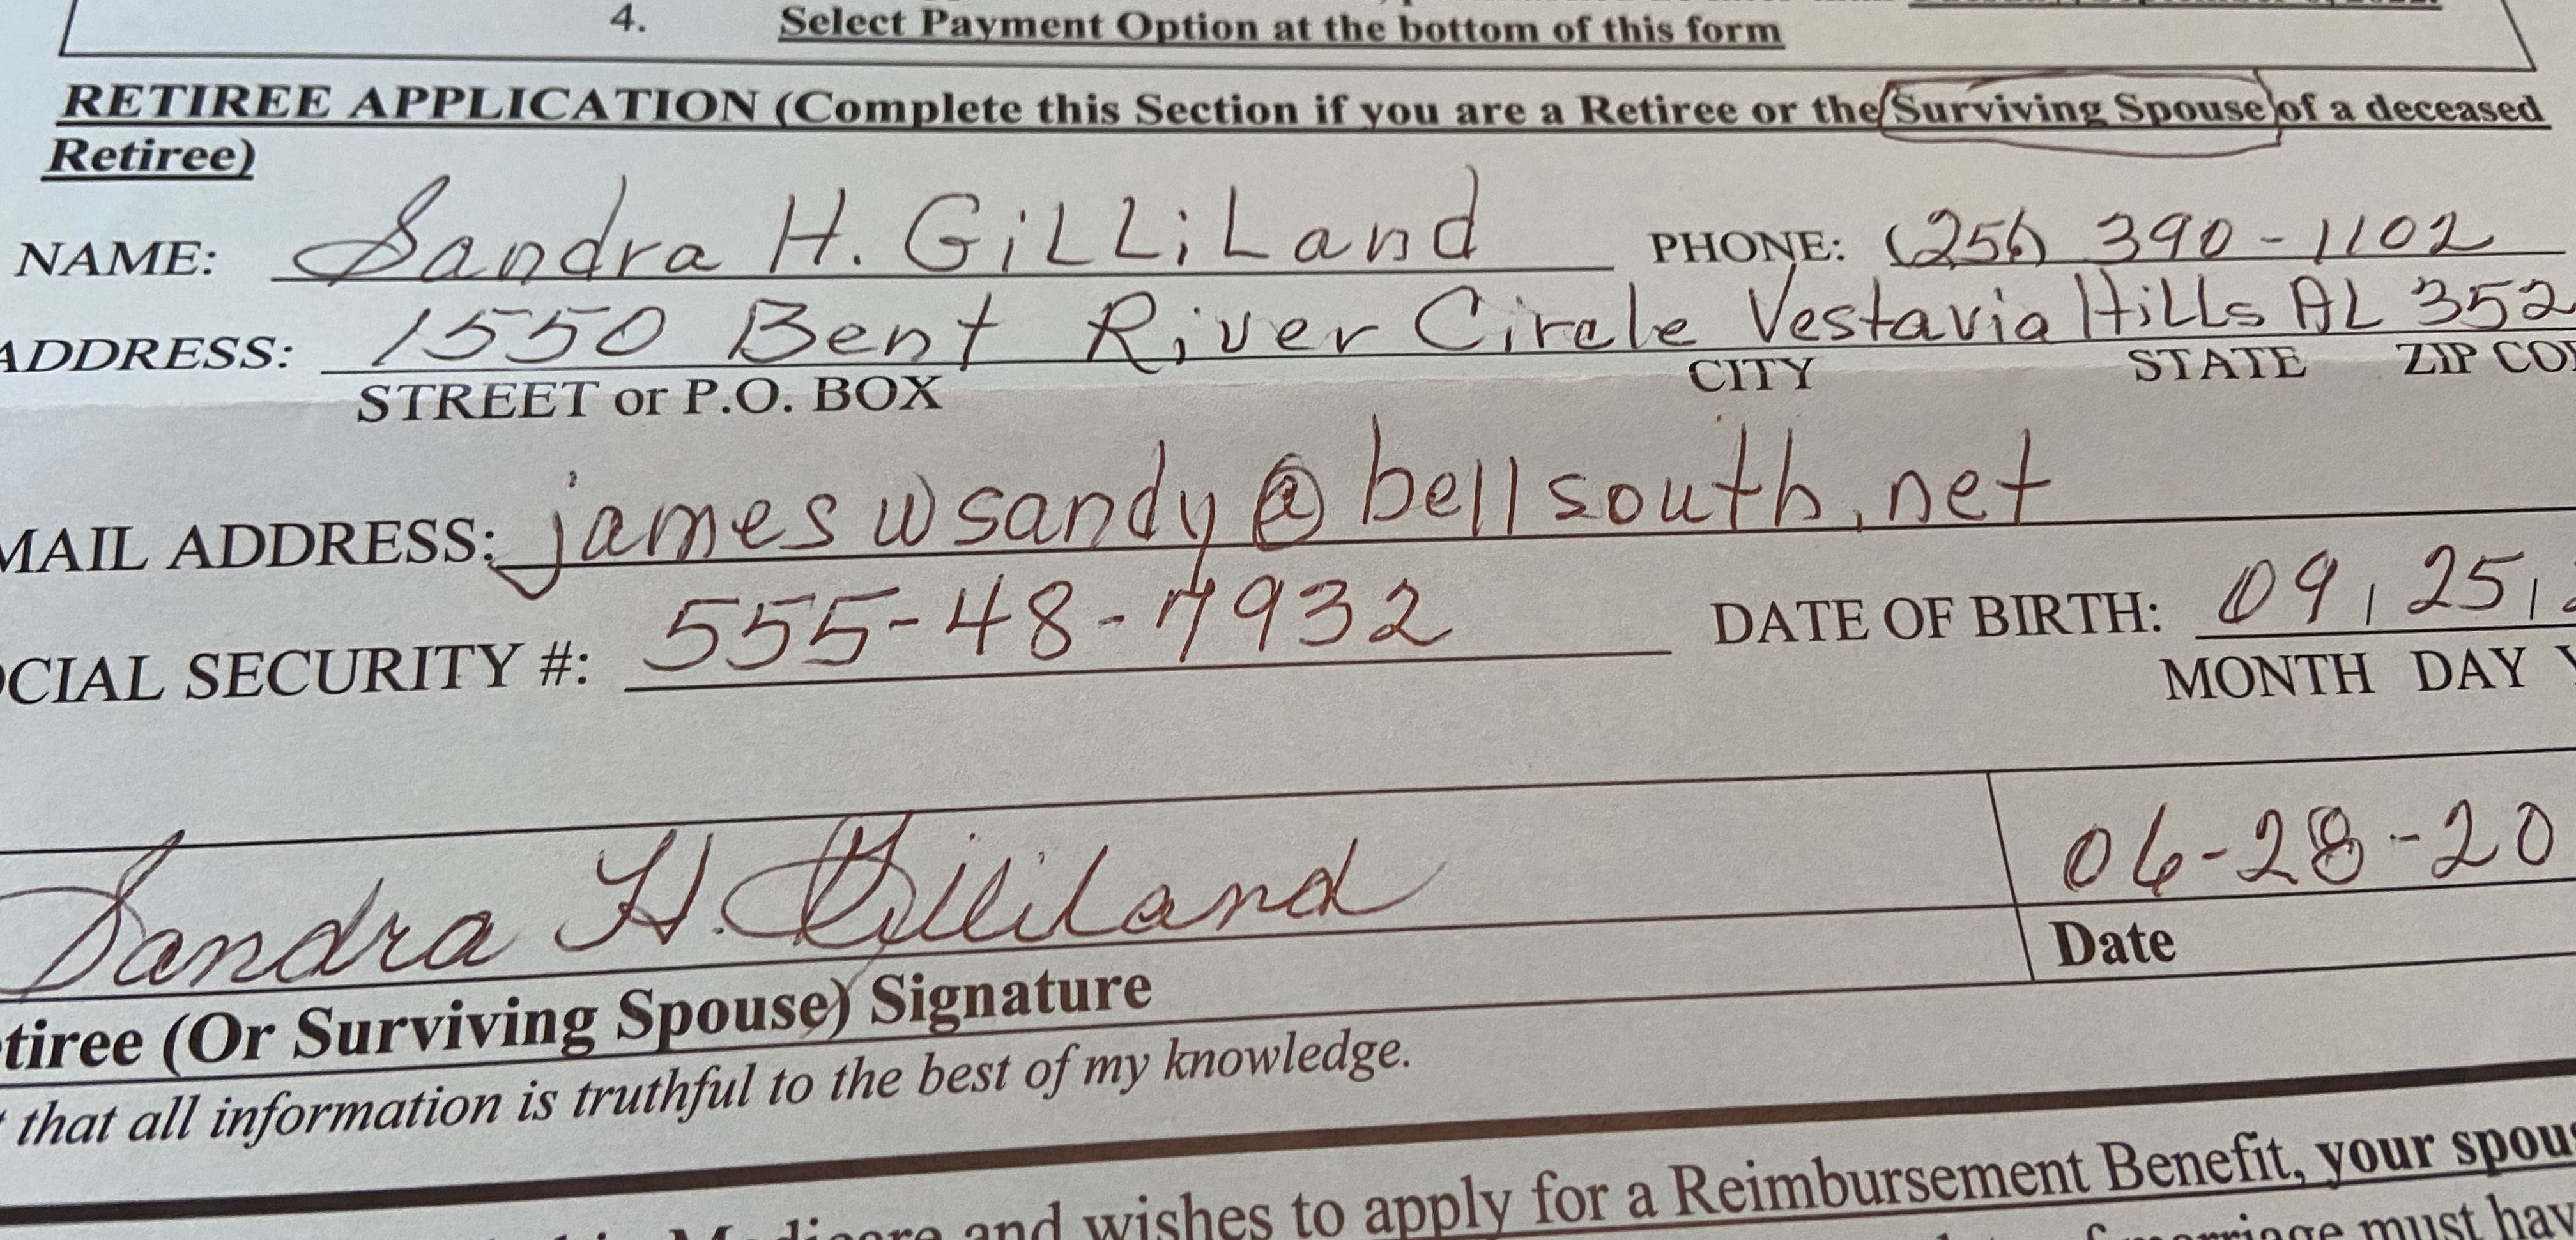 4. Select Payment Option at the bottom of this form
RETIREE APPLICATION (Complete this Section if you are a Retiree or the Surviving Spouse of a deceased
Retiree)
NAME: Sandra H. GiLLiLand PHONE: (256) 390-1102
ADDRESS: 1550 Bent River Circle Vestavia Hills AL 352
STREET or P.O. BOX CITY STATE ZIP CO
MAIL ADDRESS: jameswsandy@bellsouth.net
OCIAL SECURITY #: 555-48-7932 DATE OF BIRTH: 09, 25,
MONTH DAY Y
Sandra H. Gilliland 06-28-20
Date
tiree (Or Surviving Spouse) Signature
that all information is truthful to the best of my knowledge.
and wishes to apply for a Reimbursement Benefit, your spou
must hav